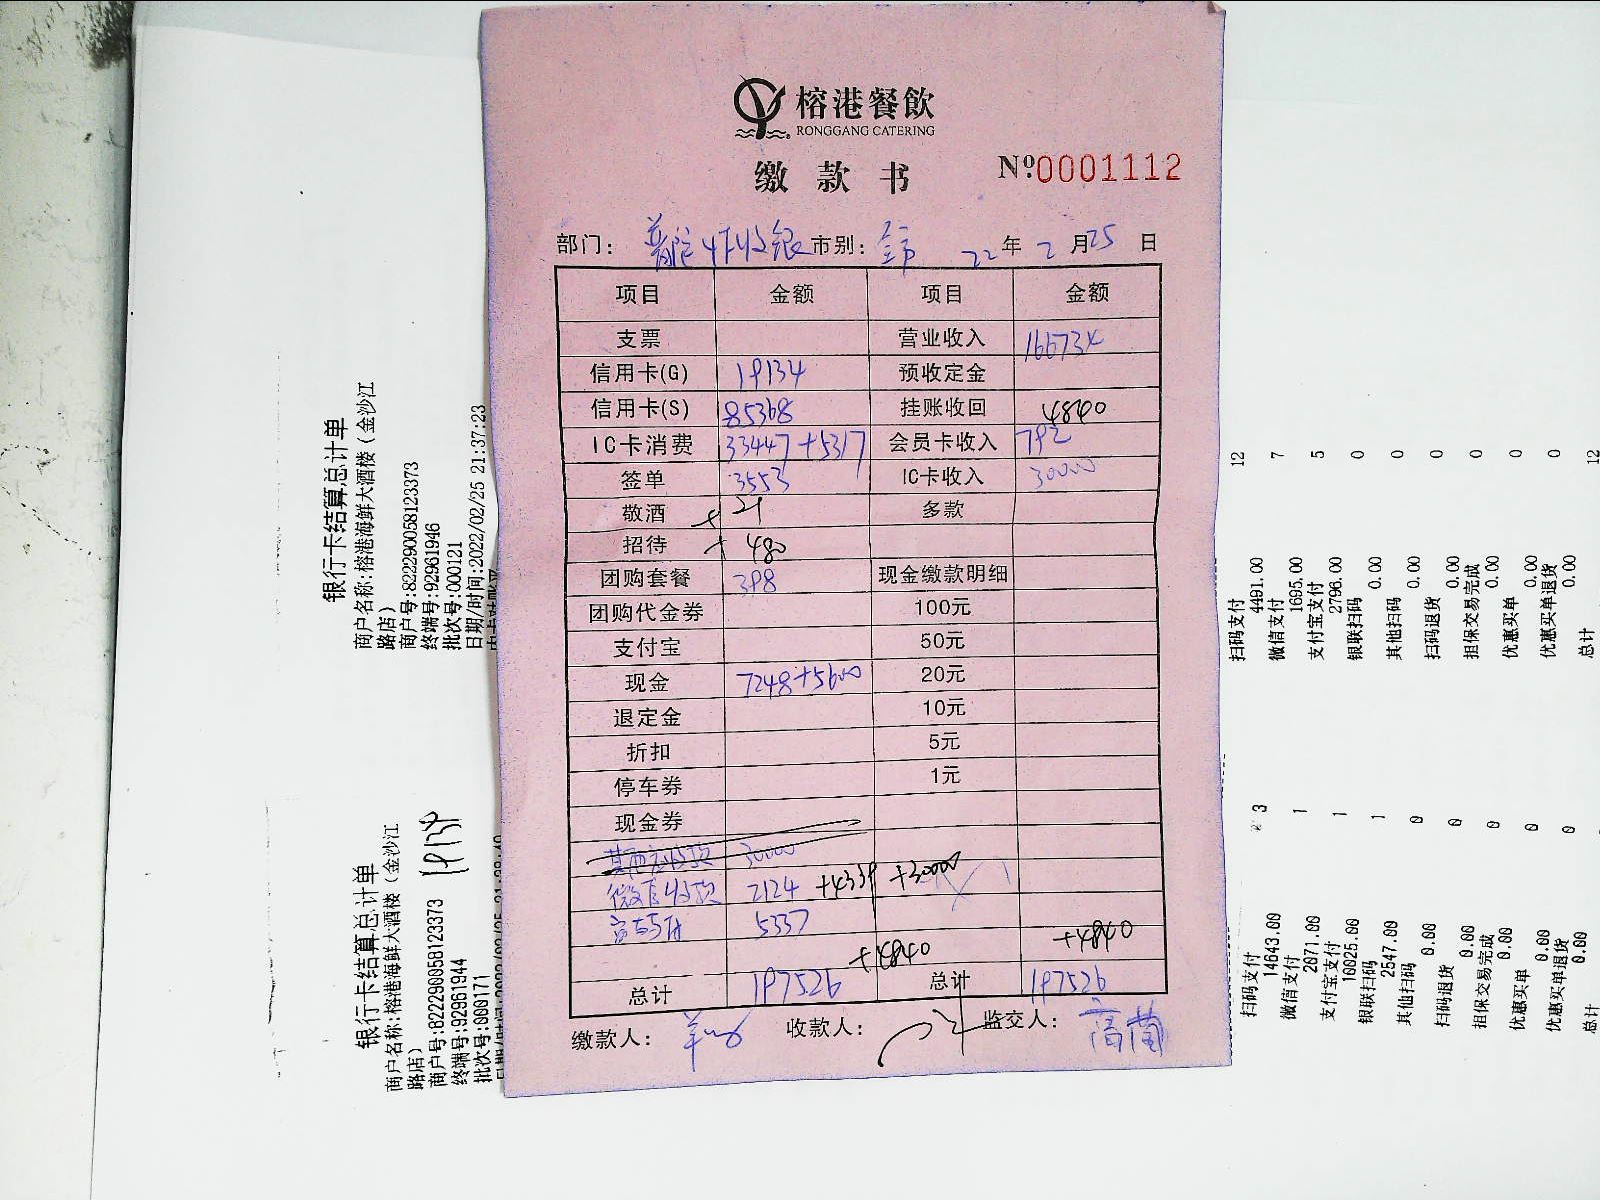 榕港餐飲
RONGGANG CATERING
缴款书 №:0001112
部门: 普陀4F收银 市别: 全市 22年 2月25日
项目 金额 项目 金额
支票 营业收入 166734
信用卡(G) 19134 预收定金
信用卡(S) 85368 挂账收回 4840
IC卡消费 33447+5317 会员卡收入 792
签单 3553 IC卡收入 30000
敬酒 + 21 多款
招待 + 480
团购套餐 398 现金缴款明细
团购代金券 100元
支付宝 50元
现金 7248+5600 20元
退定金 10元
折扣 5元
停车券 1元
现金券
30000
微信收款 2124 +4339 +30000
5337
+4840 +4840
总计 197526 总计 197526
缴款人: 收款人: 监交人: 高菌
银行卡结算总计单
商户名称:榕港海鲜大酒楼(金沙江
路店)
商户号:822290058123373
终端号:92961946
批次号:000121
日期/时间:2022/02/25 21:37:23
银行卡结算总计单
商户名称:榕港海鲜大酒楼(金沙江
路店)
商户号:822290058123373
终端号:92961944
批次号:000171
19134
扫码支付 12
4491.00
微信支付 7
1695.00
支付宝支付 5
2796.00
银联扫码 0
0.00
其他扫码 0
0.00
扫码退货 0
0.00
担保交易完成 0
0.00
优惠买单 0
0.00
优惠买单退货 0
0.00
总计 12
扫码支付 3
14643.00
微信支付 1
2071.00
支付宝支付 1
10025.00
银联扫码 1
2547.00
其他扫码 0
0.00
扫码退货 0
0.00
担保交易完成 0
0.00
优惠买单 0
0.00
优惠买单退货 0
0.00
总计